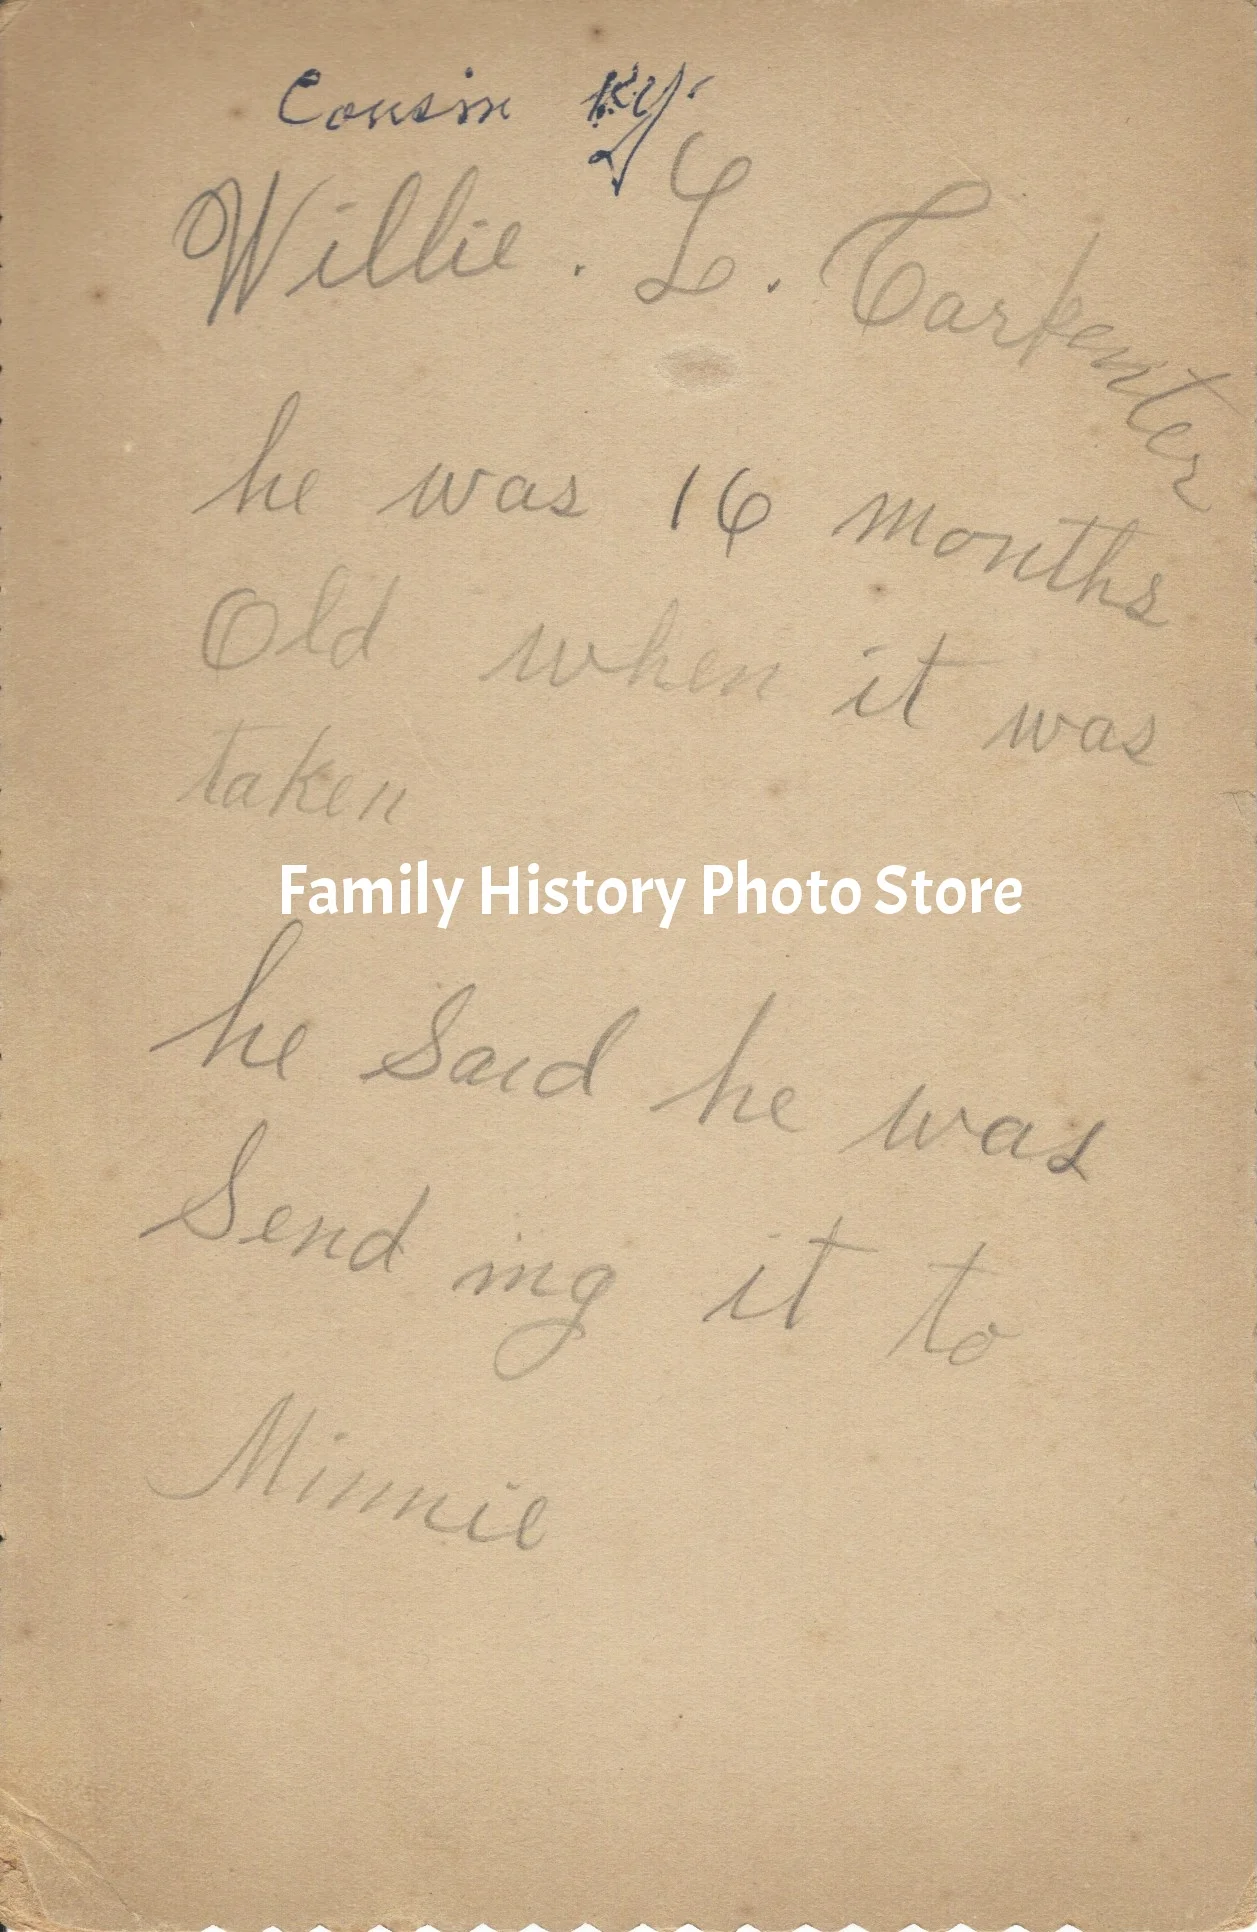 Cousin Ky.
Willie. L. Carpenter
he was 16 months
Old when it was
taken
Family History Photo Store
he Said he was
Send ing it to
Minnie